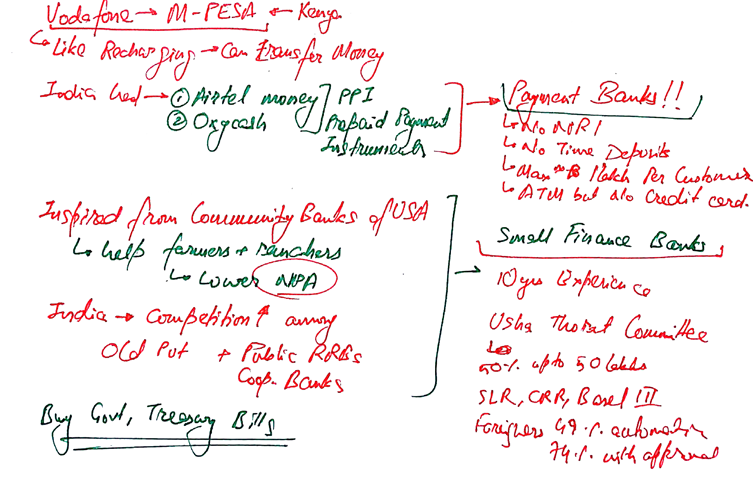 Vodafone → M-PESA ← Kenya
↳ Like Recharging → Can transfer Money
India had → ① Airtel money
② Oxycash
PPI
Prepaid Payment
Instruments
→ Payment Banks!!
↳ No NRI
↳ No Time Deposits
↳ Max 1 lakh Per Customer
↳ ATM but No Credit card.
Inspired from Community Banks of USA
↳ help farmers + ranchers
↳ Lower NPA
India → Competition ↑ among
Old Pvt + Public RRBs
Coop. Banks
Buy Govt, Treasury Bills
→ Small Finance Banks
10 yrs Experience
Usha Thorat Committee
↳
50% upto 50 lakhs
SLR, CRR, Basel III
Foreigners 49% automatic
74% with approval